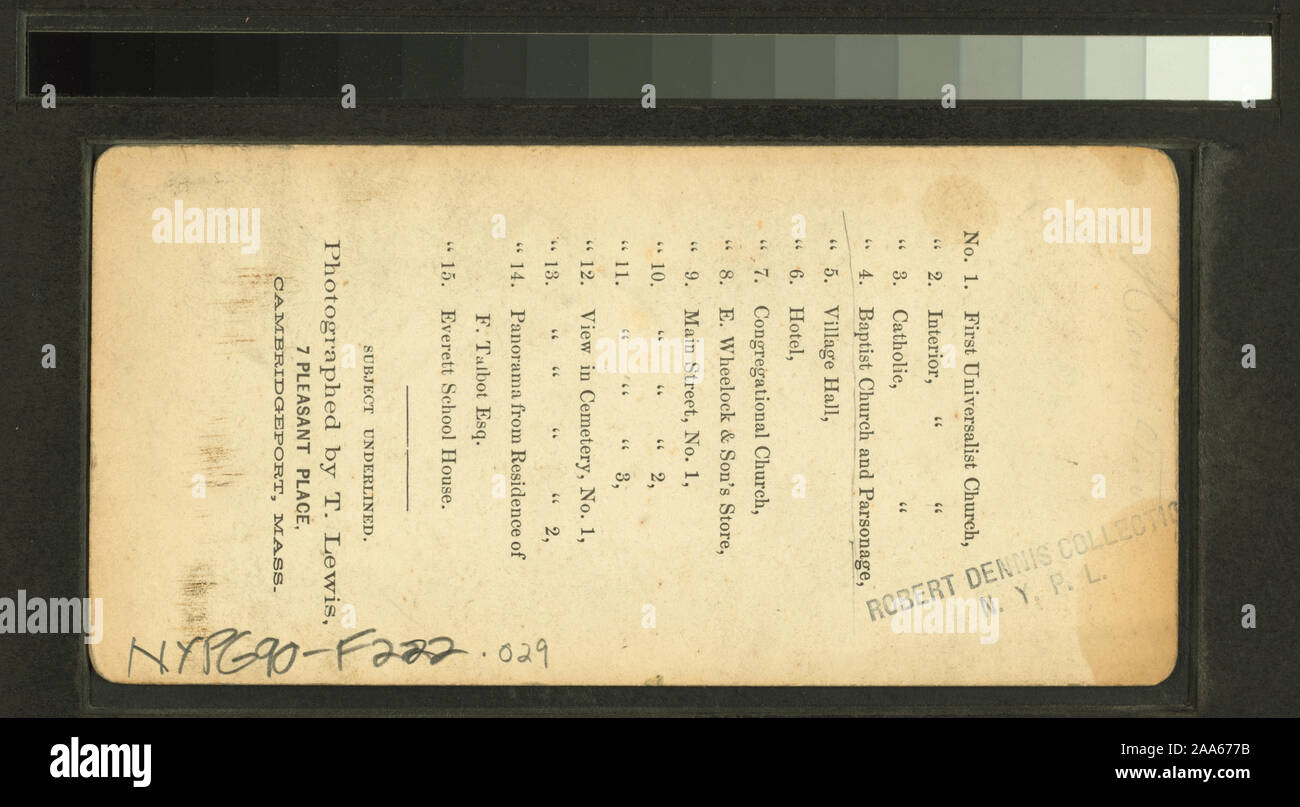 No. 1. First Universalist Church,
“ 2. Interior, “ “
“ 3. Catholic, “
“ 4. Baptist Church and Parsonage,
“ 5. Village Hall,
“ 6. Hotel,
“ 7. Congregational Church,
“ 8. E. Wheelock & Son's Store,
“ 9. Main Street, No. 1,
“ 10. “ “ 2,
“ 11. “ “ “ 3,
“ 12. View in Cemetery, No. 1,
“ 13. “ “ “ “ 2,
“ 14. Panorama from Residence of
F. Talbot Esq.
“ 15. Everett School House.
SUBJECT UNDERLINED.
Photographed by T. Lewis,
7 PLEASANT PLACE,
CAMBRIDGEPORT, MASS.
ROBERT DENNIS COLLECTIO
N. Y. P. L.
NYPG90-F222 .029
alamy
alamy
Image ID: 2AA677B
www.alamy.com